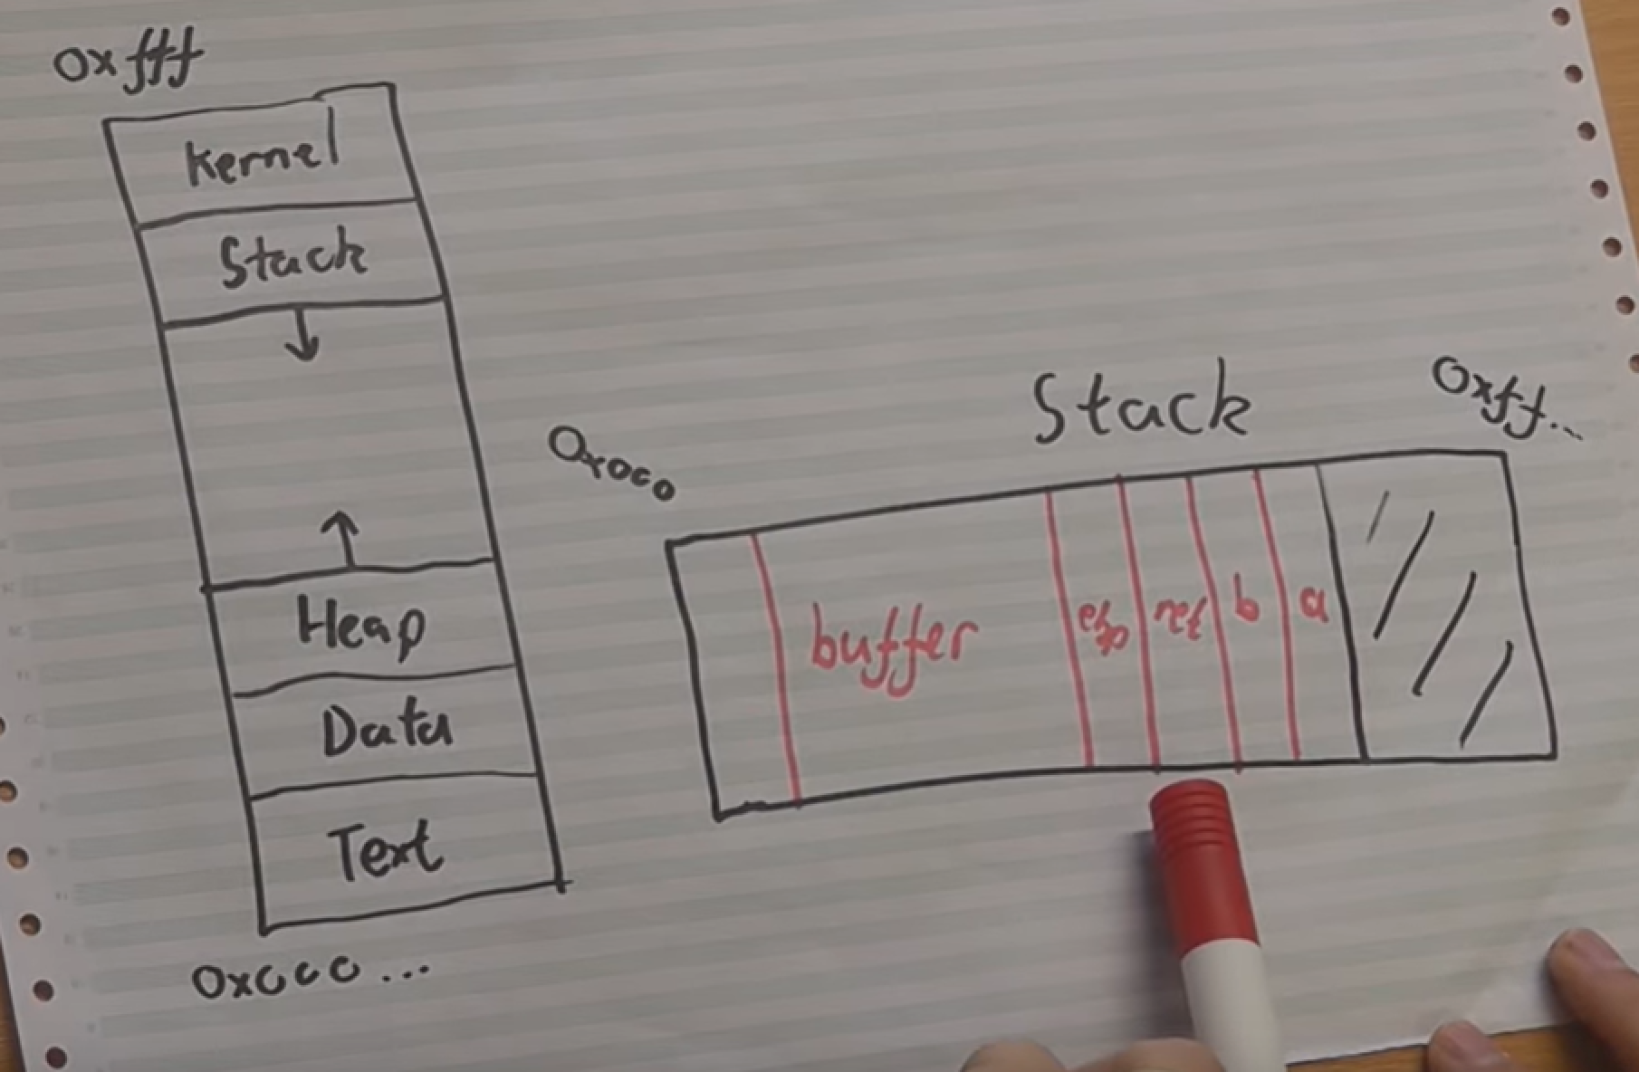 0xfff
Kernel
Stack
Heap
Data
Text
0x000...
Stack
0x000
0xff...
buffer
ebp
ret
b
a